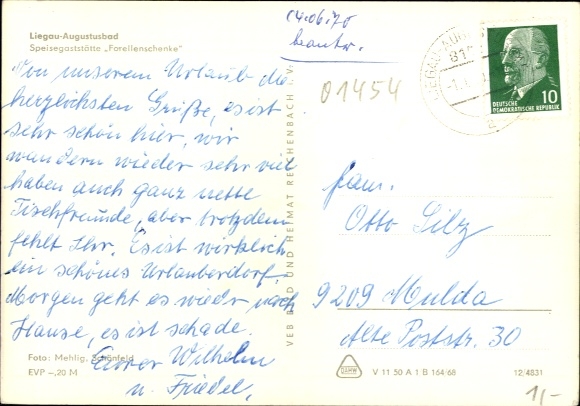 Liegau-Augustusbad
Speisegaststätte „Forellenschenke"
Von unserem Urlaub die
herzlichsten Grüße, es ist
sehr schön hier, wir
wandern wieder sehr viel
haben auch ganz nette
Tischfreunde, aber trotzdem
fehlt Ihr. Es ist wirklich
ein schönes Urlauberdorf.
Morgen geht es wieder nach
Hause, es ist schade.
Eurer Wilhelm
u. Friedel.
Foto: Mehlig, Schönfeld
EVP –,20 M
VEB BILD UND HEIMAT REICHENBACH I. V.
04.06.70
beantw.
01454
DEUTSCHE
DEMOKRATISCHE REPUBLIK
10
Fam.
Otto Silz
9209 Mulda
Alte Poststr. 30
V 11 50 A 1 B 164/68
12/4831
1,-